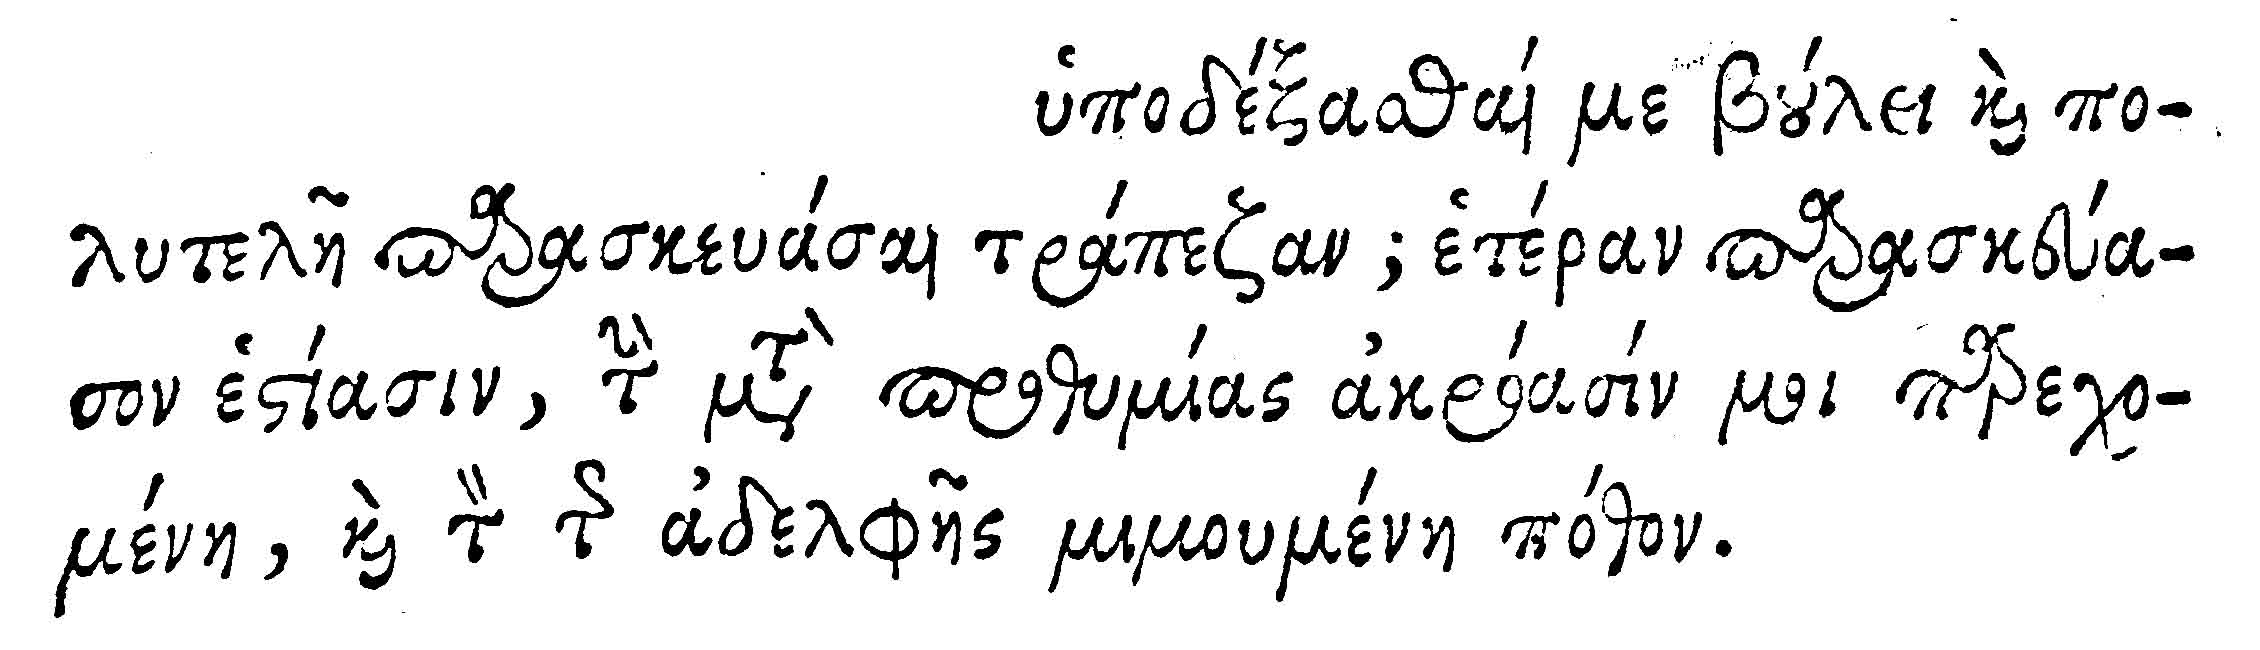 ὑποδέξασθαί με βούλει καὶ πο-
λυτελῆ παρασκευάσαι τράπεζαν; ἑτέραν παρασκευά-
σον ἑστίασιν, τὴν μετὰ προθυμίας ἀκρόασίν μοι παρεχο-
μένη, καὶ τὸν τῆς ἀδελφῆς μιμουμένη πόθον.